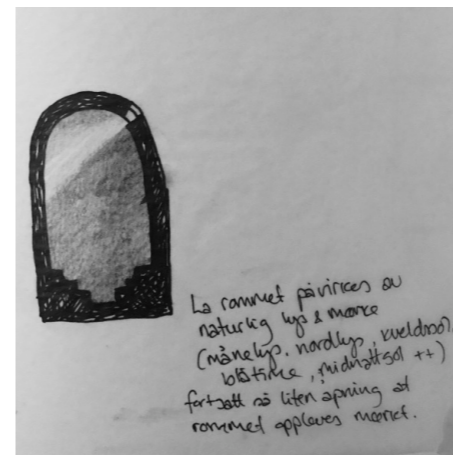 La rommet påvirkes av
naturlig lys & mørke
(månelys, nordlys, kveldssol,
blåtime, midnattsol ++)
fortsatt så liten åpning at
rommet oppleves mørket.